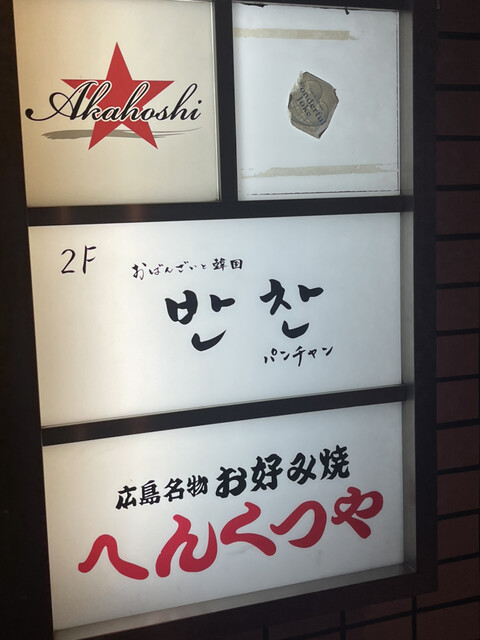 Akahoshi
Wonderful
Joke
2F
おばんざいと韓国
반찬
パンチャン
広島名物 お好み焼
へんくつや